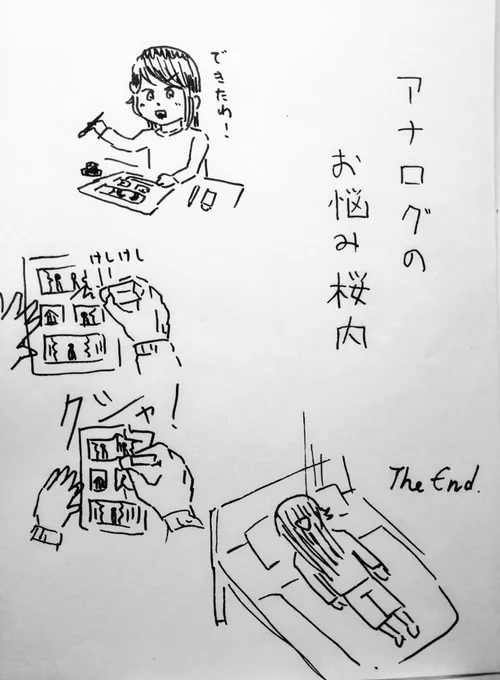 アナログの
お悩み桜内
できたわ!
けしけし
グシャ!
The End.